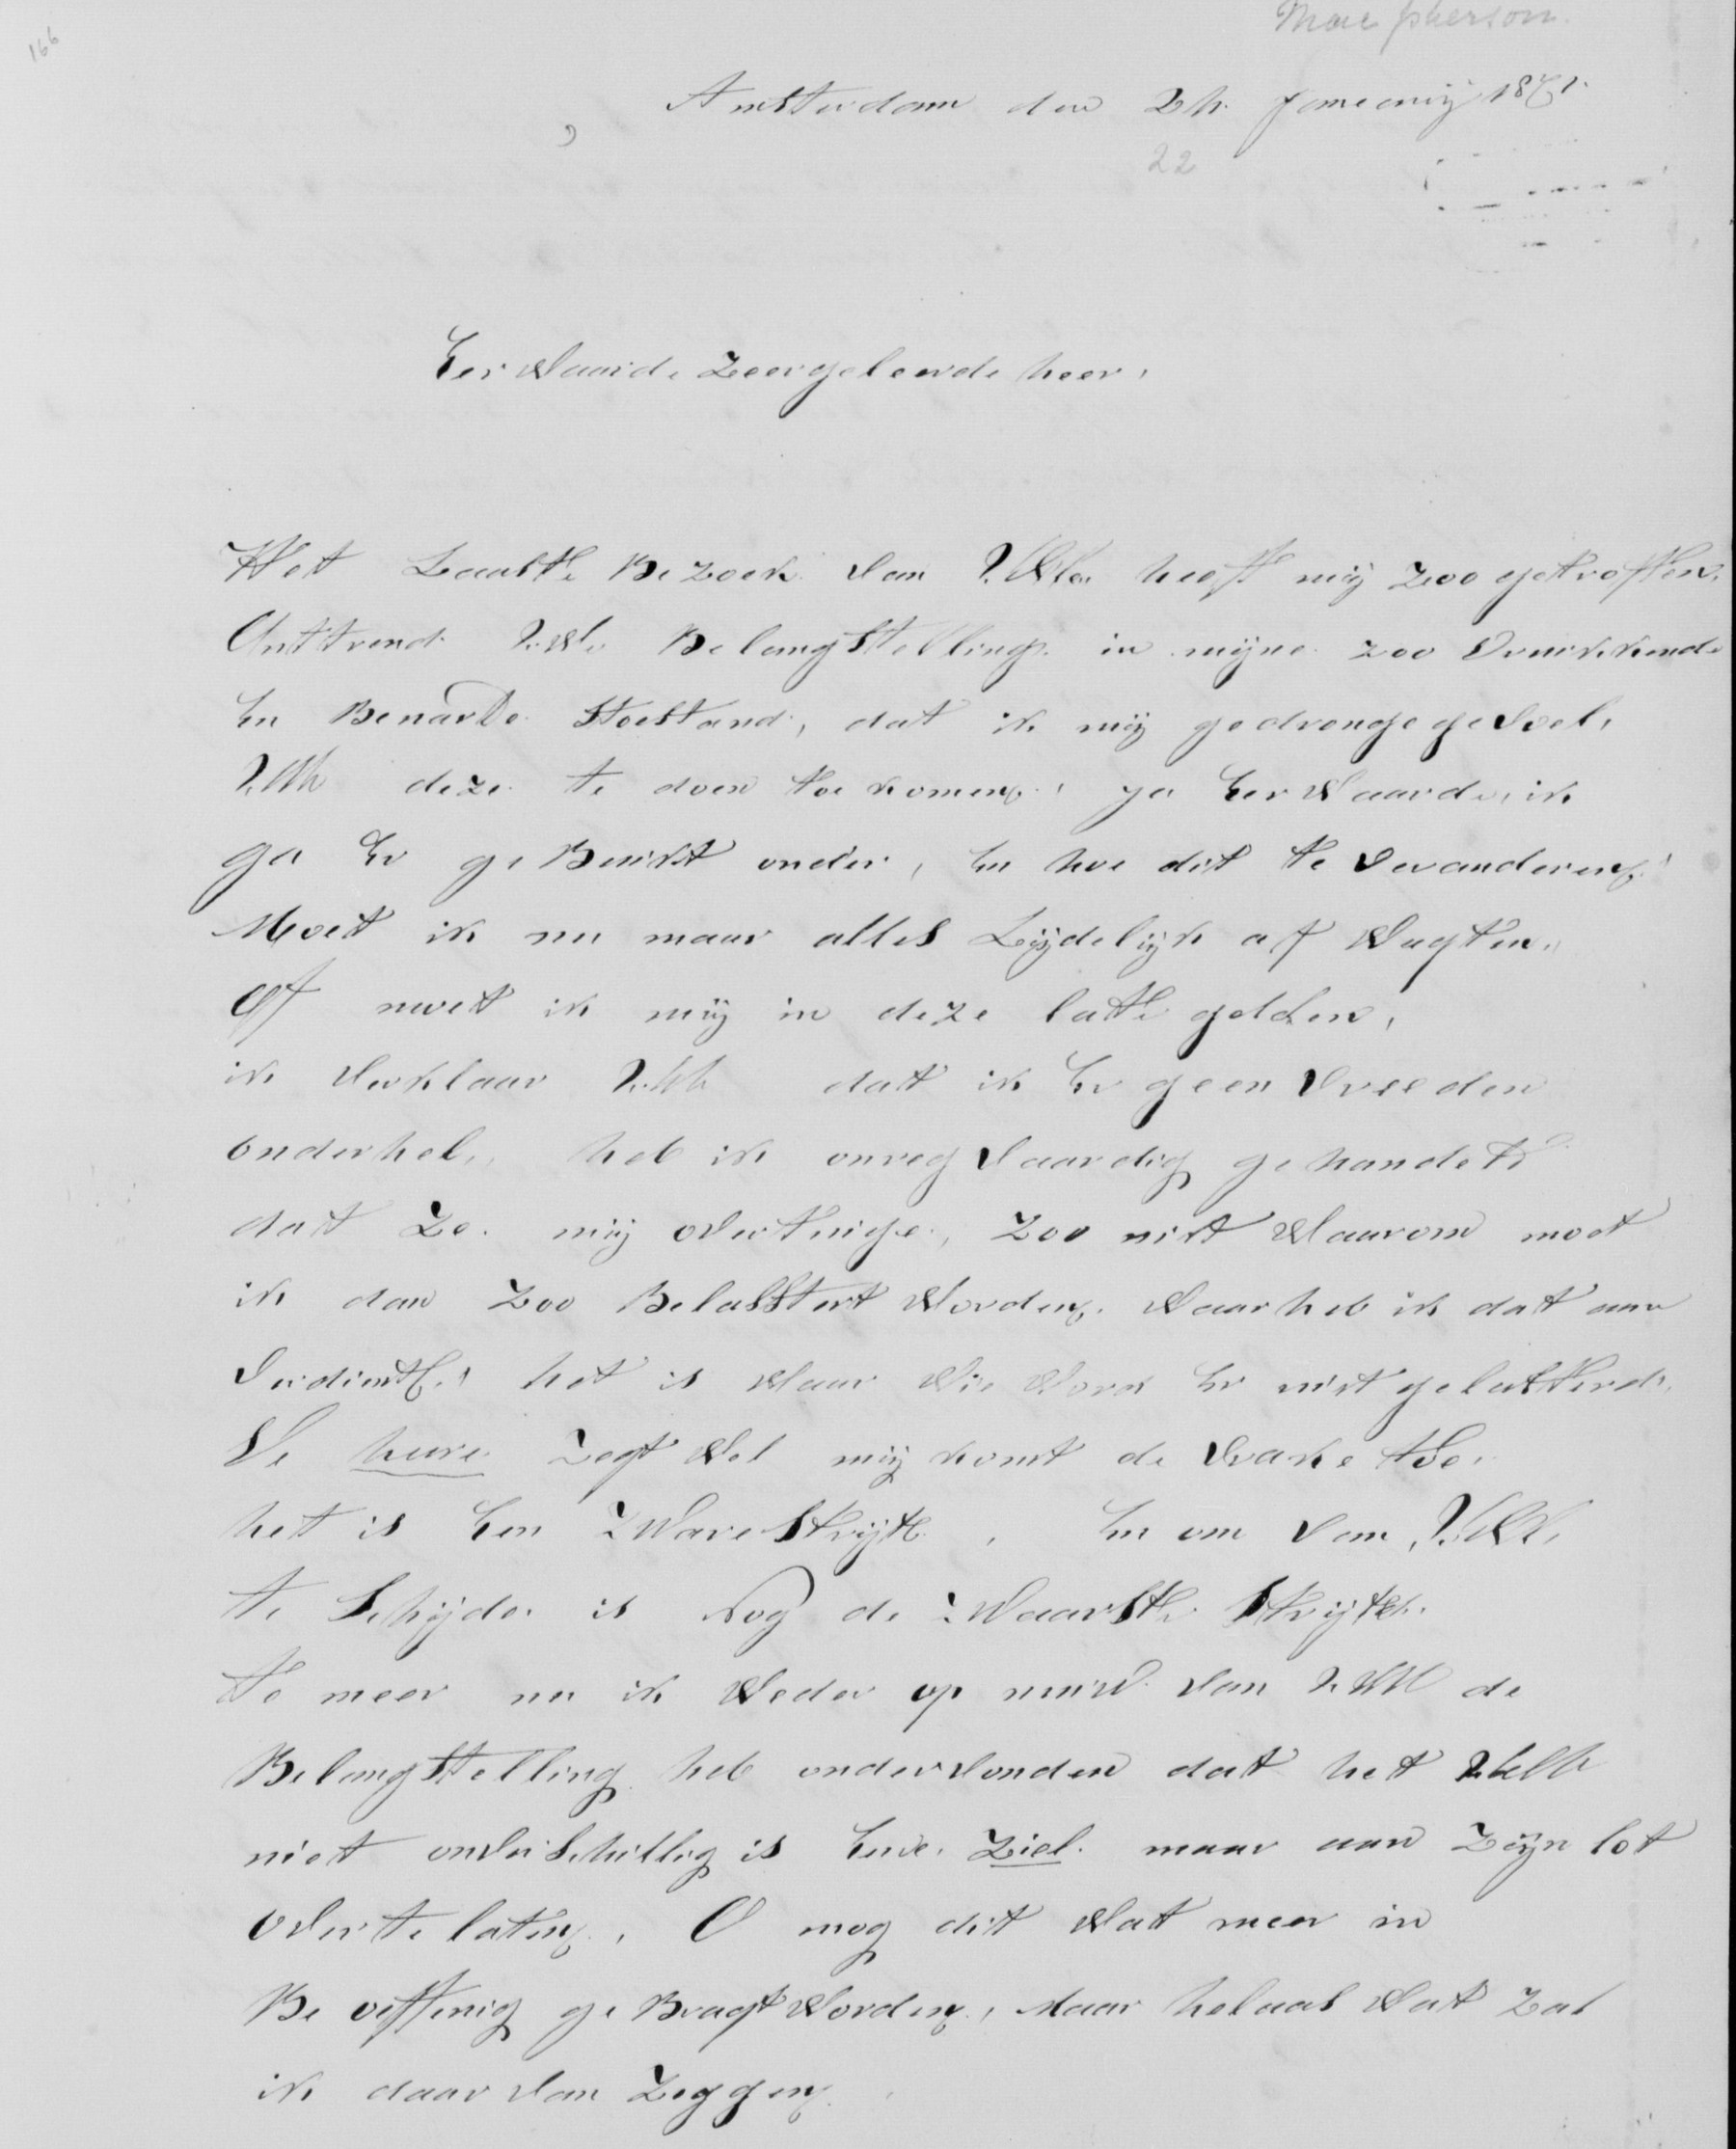 166
Macpherson.
Amsterdam den 24. Januarij 1871.
22
Eer Waarde Zeergeleerde heer,
Het Laaste Bezoek van UWE heeft mij zoo getroffen,
Onttrend UWE Belangstelling in mijne zoo Drukkende
En Benarde Stoestand, dat ik mij gedronge gevoel,
UWE deze te doen toe komen, ja Eer Waarde, ik
ga Er ge Bukt onder, En hoe dit te veranderen,
Moet ik nu maar alles Lijdelijk af Wagten,
Of moet ik mij in deze late gelden,
ik Verklaar UWE dat ik Er geen Vreeden
onder heb, heb ik onregvaardig gehandelt
dat Ze mij overtuige, Zoo niet Waarom moet
ik dan Zoo Belasstert Worden, Waar heb ik dat aan
Verdient, het is Waar Wie Word Er niet gelasterd,
De heere Zegt Wel mij komt de Vrake toe,
het is Een ZWare Strijt, En om van UWE,
te Schijde is nog de ZWaarste Strijt
te meer nu ik Weder op nuuw van UWE de
Belangstelling heb ondervonden dat het UWE
niet onverschillig is Eene Ziel maar aan Zijn lot
over te laten, O mog dit Wat meer in
Be oeffenig ge Bragt Worden, Maar helaas Wat Zal
ik daar van Zeggen